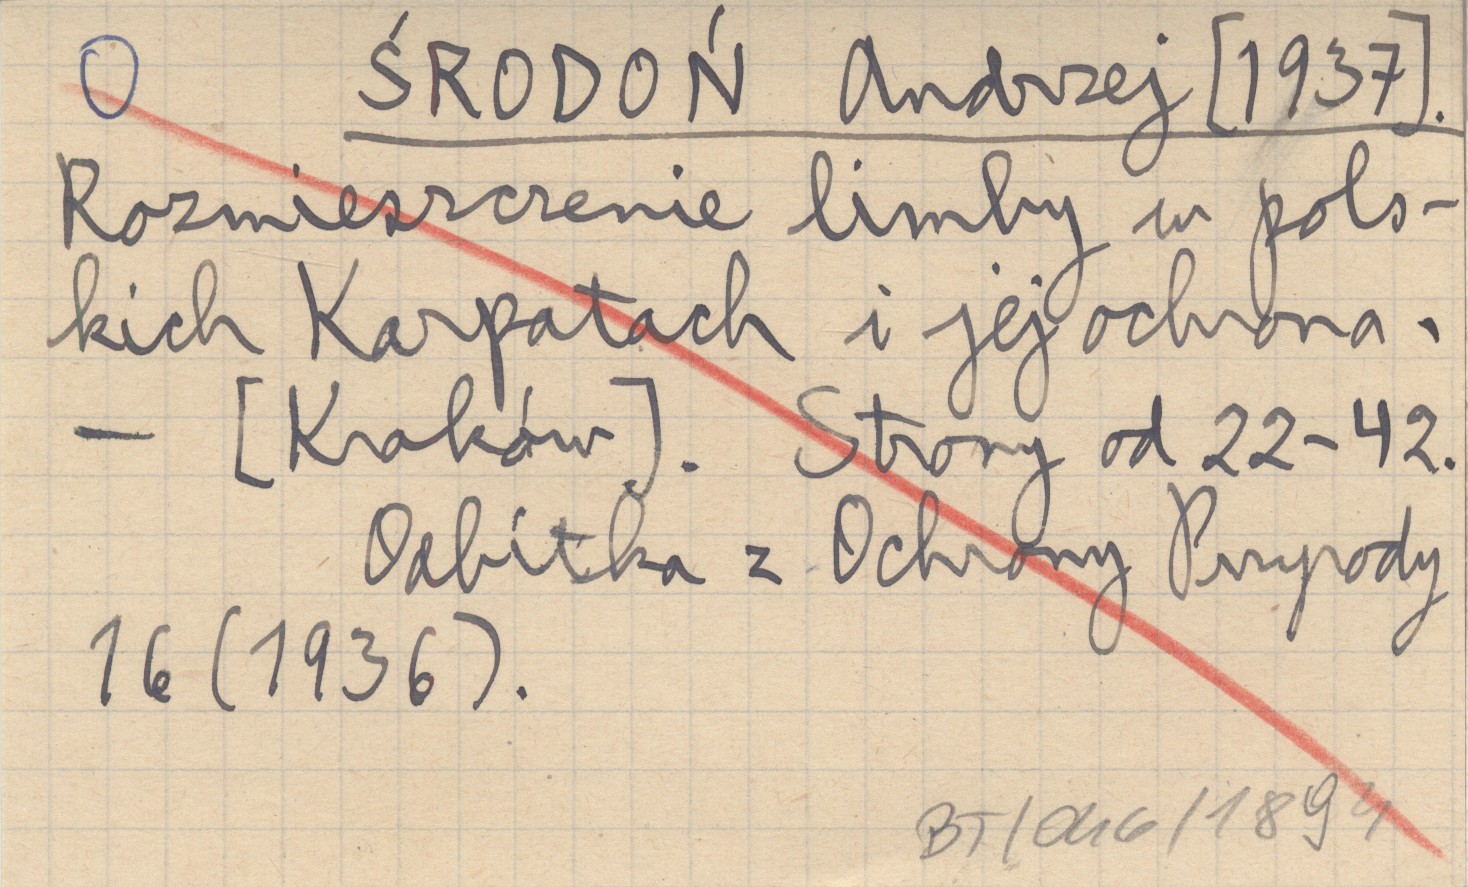 O ŚRODOŃ Andrzej [1937].
Rozmieszczenie limby w pols-
kich Karpatach i jej ochrona.
— [Kraków]. Strony od 22-42.
Odbitka z Ochrony Przyrody
16 (1936).
BT/046/1894